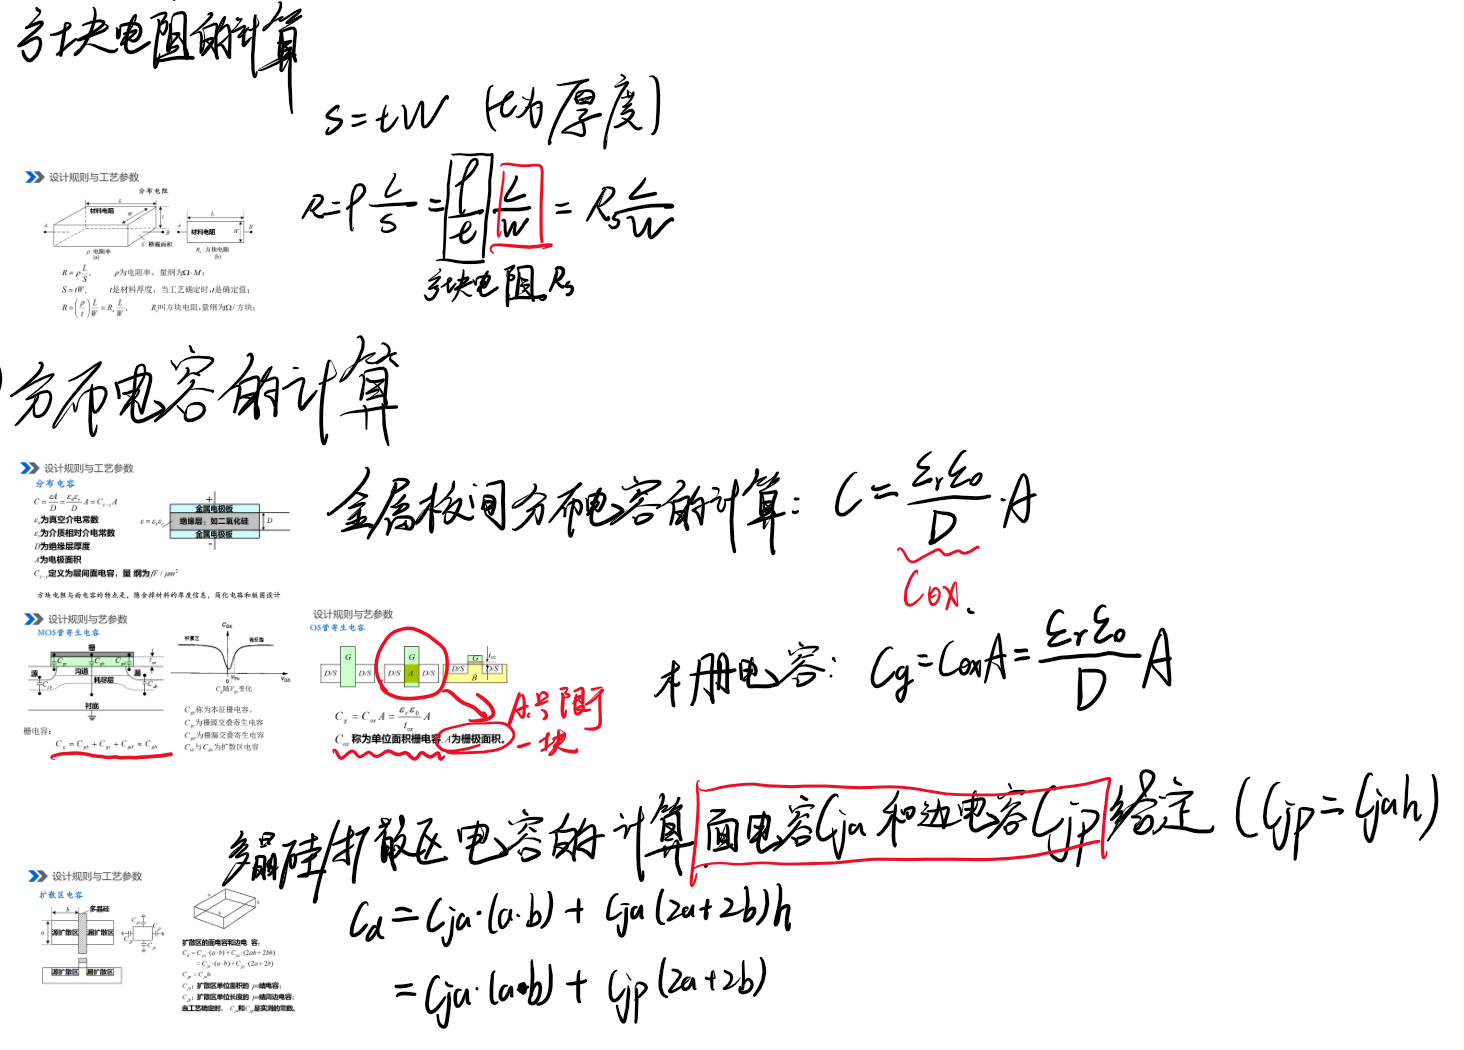 方块电阻的计算
S=tW (t为厚度)
设计规则与工艺参数
分布电阻
L
W
t
材料电阻
A
B
S:横截面积
ρ:电阻率
(a)
L
A
材料电阻
W
B
R_s:方块电阻
(b)
R=ρ L/S, ρ为电阻率，量纲为Ω·M；
S=tW, t是材料厚度，当工艺确定时,t是确定值；
R=(ρ/t) L/W=R_s L/W, R_s叫方块电阻,量纲为Ω/方块；
R=ρ L/S = ρ/t L/W = Rs L/W
方块电阻 Rs
分布电容的计算
设计规则与工艺参数
分布电容
C=εA/D=ε₀εᵣ/D A=C A
ε₀为真空介电常数
εᵣ为介质相对介电常数
D为绝缘层厚度
A为电极面积
定义为层间面电容，量 纲为fF/μm²
+
金属电极板
ε=ε₀εᵣ
绝缘层：如二氧化硅
D
金属电极板
-
方块电阻与面电容的特点是，隐含掉材料的厚度信息，简化电路和版图设计
金属板间分布电容的计算: C=εᵣε₀/D·A
Cox
设计规则与艺参数
MOS管寄生电容
栅
源
沟道
漏
耗尽层
衬底
栅电容:
C_g = C_gb + C_gs + C_gd ≈ C_gb
积累区
C_GS
强反型
0
V_GS
C_g随V_gs变化
称为本征栅电容，
为栅源交叠寄生电容
为栅漏交叠寄生电容
C_sb与C_db为扩散区电容
设计规则与艺参数
OS管寄生电容
G
D/S
D/S
G
D/S
A
D/S
G
D/S
D/S
B
C_g = C_ox A = εᵣε₀/t_ox A
C_ox称为单位面积栅电容,A为栅极面积。
A只号限于
一块
栅电容: Cg=CoxA=εᵣε₀/D A
多晶硅/扩散区电容的计算 面电容Cja 和边电容Cjp 给定 (Cjp=Cjah)
设计规则与工艺参数
扩散区电容
b
多晶硅
a
源扩散区
漏扩散区
源扩散区
漏扩散区
a
b
h
扩散区的面电容和边电 容：
C_d=C_ja·(a·b)+C_ja·(2ah+2bh)
=C_ja·(a·b)+C_jp·(2a+2b)
C_jp=C_jah
C_ja：扩散区单位面积的 pn结电容；
C_jp：扩散区单位长度的 pn结周边电容；
当工艺确定时，C_ja和C_jp是实测的常数。
Cd=Cja·(a·b)+Cja(2a+2b)h
=Cja·(a·b)+Cjp(2a+2b)